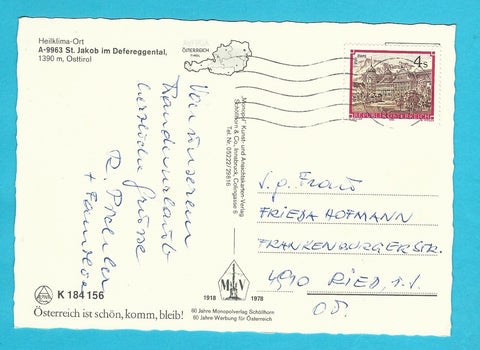 Heilklima-Ort
A-9963 St. Jakob im Defereggental,
1390 m, Osttirol
ÖSTERREICH
TIROL
4 S
REPUBLIK ÖSTERREICH
Von unserem
Wanderurlaub
herzliche Grüsse
R. Pichler
+ Familie
"Monopol" Kunst- und Ansichtskarten-Verlag
Schöllhorn & Co., Innsbruck, Colingasse 6
Tel. Nr. 05222/29816
S.g. Frau
FRIEDA HOFMANN
FRANKENBURGERSTR.
4910 RIED, i. I.
O.Ö.
K 184 156
Österreich ist schön, komm, bleib!
M V
1918 1978
60 Jahre Monopolverlag Schöllhorn
60 Jahre Werbung für Österreich